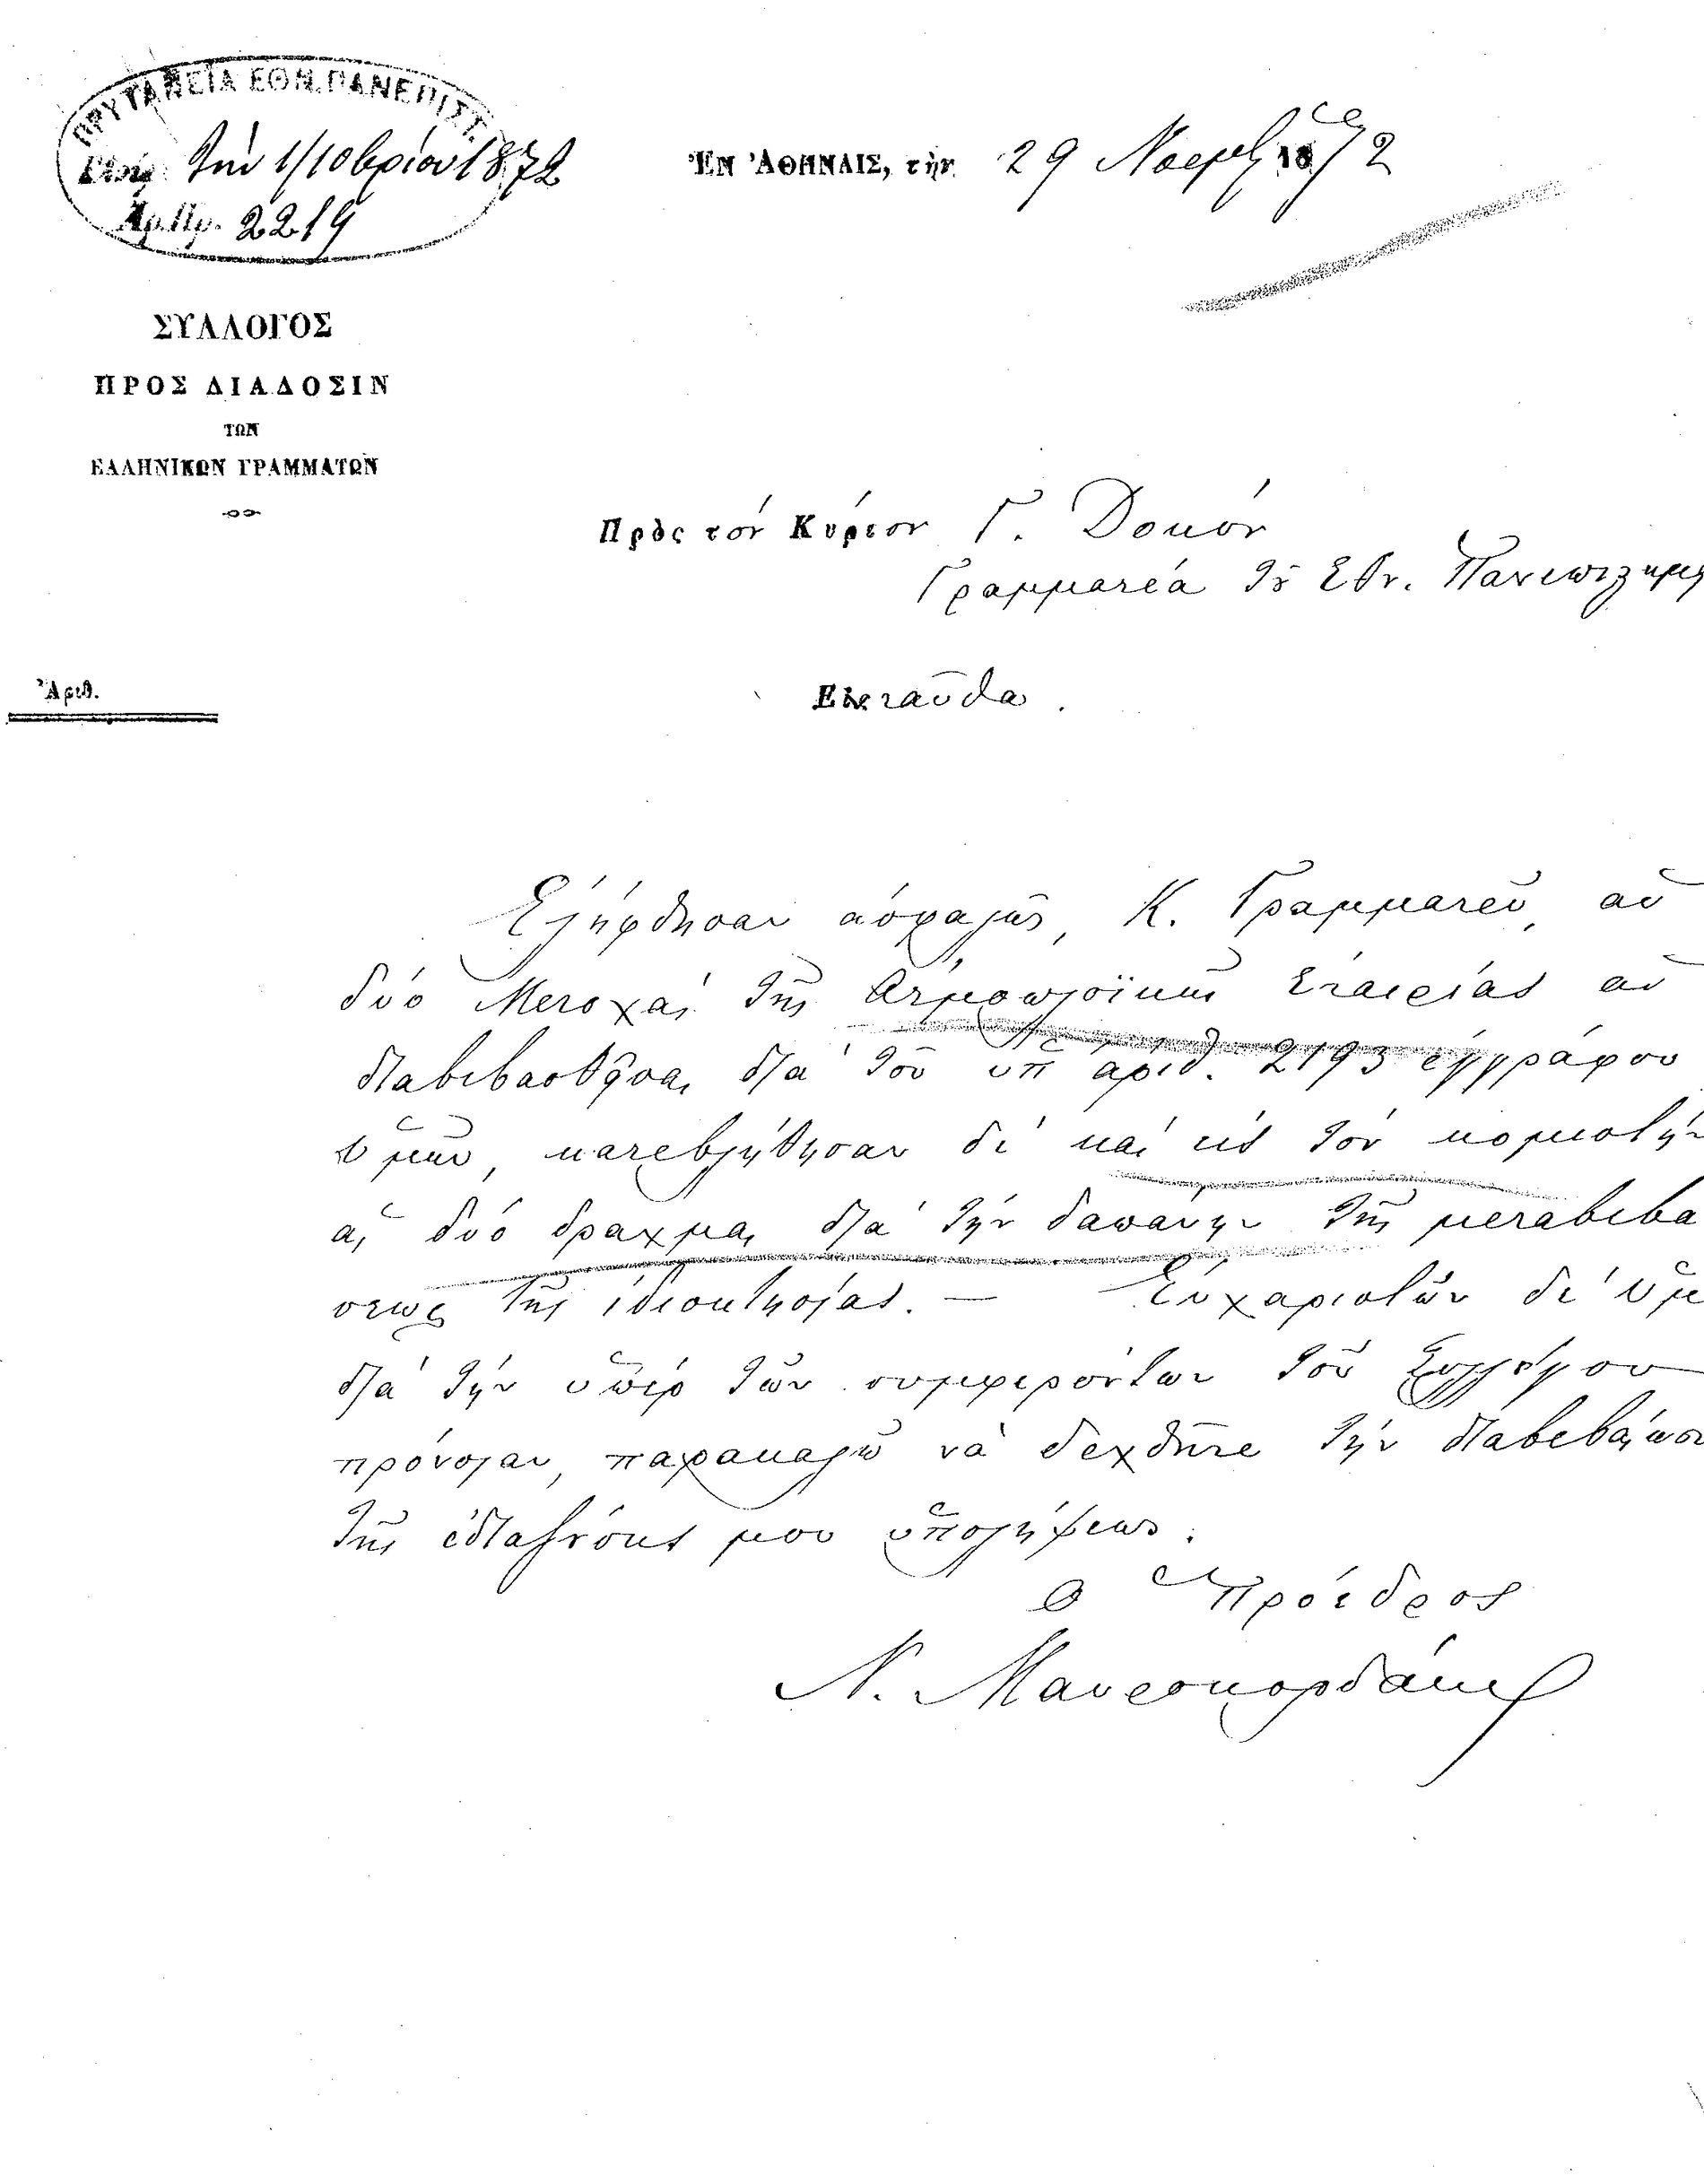 ΠΡΥΤΑΝΕΙΑ ΕΘΝ. ΠΑΝΕΠΙΣΤ.
τὴν 1/10βρίου 1872
Ἀρ. Πρ. 2219
ἘΝ ἈΘΗΝΑΙΣ, τὴν 29 Νοεμβ 1872
ΣΥΛΛΟΓΟΣ
ΠΡΟΣ ΔΙΑΔΟΣΙΝ
ΤΩΝ
ΕΛΛΗΝΙΚΩΝ ΓΡΑΜΜΑΤΩΝ
Πρὸς τὸν Κύριον Γ. Δοκὸν
Γραμματέα τοῦ Ἐθν. Πανεπιστημι
Ἀριθ.
Ἐνταῦθα.
Ἐλήφθησαν ἀσφαλῶς, Κ. Γραμματεῦ, αἱ
δύο Μετοχαὶ τῆς Ἀτμοπλοϊκῆς Ἑταιρίας αἱ
διαβιβασθεῖσαι διὰ τοῦ ὑπ' ἀριθ. 2193 ἐγγράφου
ὑμῶν, κατεβλήθησαν δὲ καὶ εἰς τὸν κομιστὴν
αἱ δύο δραχμαὶ διὰ τὴν δαπάνην τῆς μεταβιβά
σεως τῆς ἰδιοκτησίας. — Εὐχαριστῶν δὲ ὑμ
διὰ τὴν ὑπὲρ τῶν συμφερόντων τοῦ Συλλόγου
πρόνοιαν, παρακαλῶ νὰ δεχθῆτε τὴν διαβεβαίωσι
τῆς ἐδιαζούσης μου ὑπολήψεως.
Ὁ Πρόεδρος
Ν. Μαυροκορδάτος